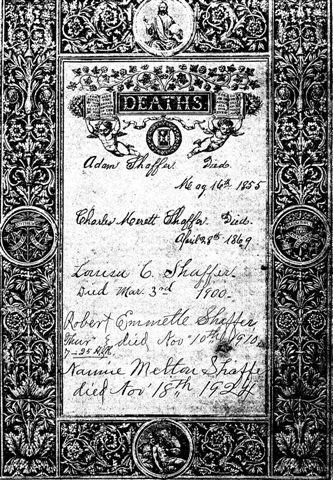 DEATHS.
Adam Shaffer Died
May 16th 1855
Charles Merett Shaffer Died.
April 28th 1869
Louisa C. Shaffer
Died Mar. 3rd 1900.
Robert Emmette Shaffer
died Nov 10th 1910
Nannie Melton Shaffe
died Nov 18th 1924